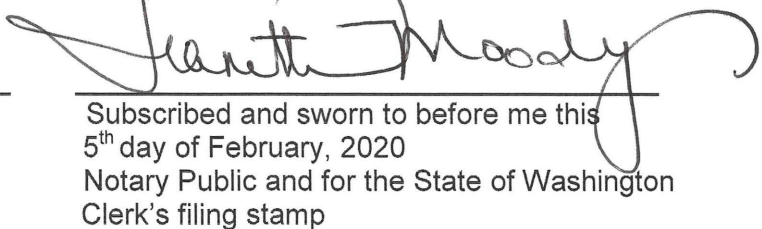 Jeanette Moody
Subscribed and sworn to before me this
5th day of February, 2020
Notary Public and for the State of Washington
Clerk's filing stamp